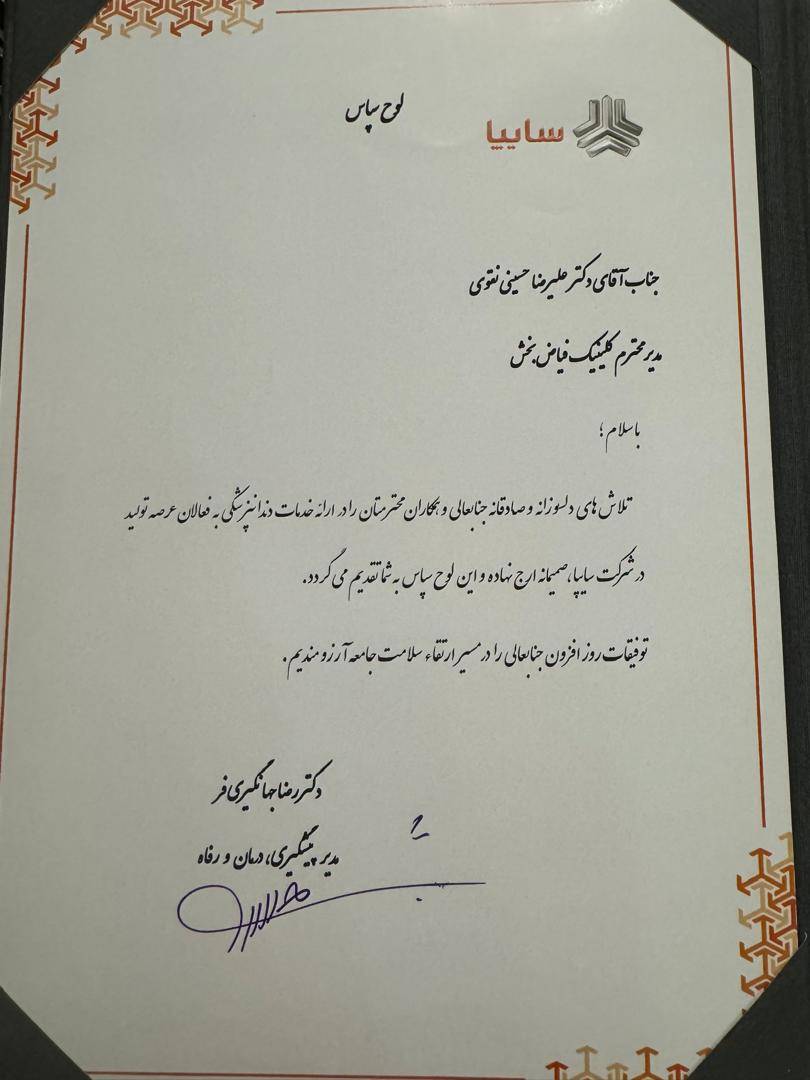 سایپا
لوح سپاس
جناب آقای دکتر علیرضا حسینی نقوی
مدیر محترم کلینیک فیاض بخش
با سلام؛
تلاش های دلسوزانه و صادقانه جنابعالی و همکاران محترمتان را در ارائه خدمات دندانپزشکی به فعالان عرصه تولید
در شرکت سایپا، صمیمانه ارج نهاده و این لوح سپاس به شما تقدیم می گردد.
توفیقات روز افزون جنابعالی را در مسیر ارتقاء سلامت جامعه آرزومندیم.
دکتر رضا جهانگیری فر
مدیر پیشگیری، درمان و رفاه